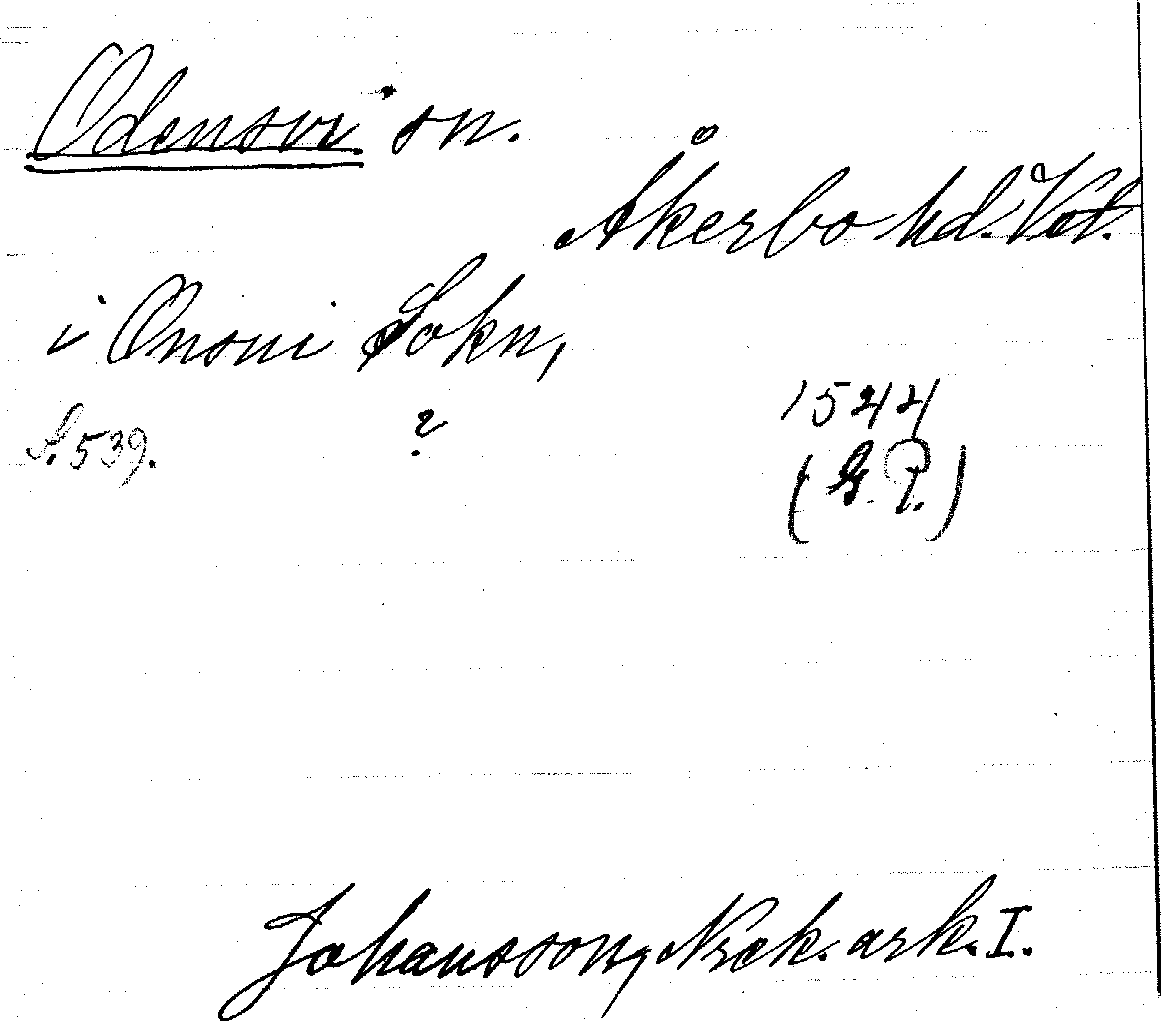 Odensvi sn.
Åkerbo hd. Vstl.
i Onsui Sokn,
S. 539. ? 1544
(G. P.)
Johansson, Nrck. ark. I.